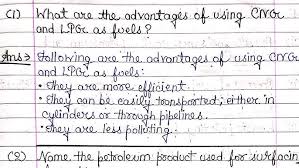 (1) What are the advantages of using CNG
and LPG as fuels?
Ans⇒ Following are the advantages of using CNG
and LPG as fuels:
• They are more efficient.
• They can be easily transported; either in
cylinders or through pipelines.
• They are less polluting.
(2) Name the petroleum product used for surfacing